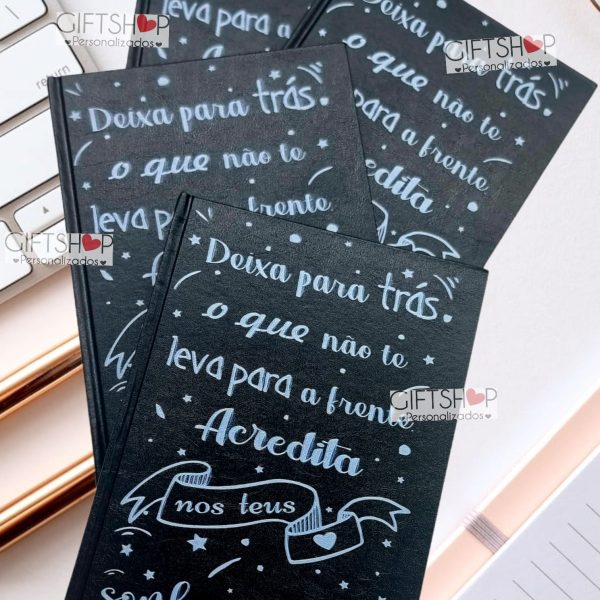 GIFTSHOP
Personalizados
GIFTSHOP
Personalizados
leva para a
return
Deixa para trás
o que não te
leva para a frente
Deixa para trás
o que não te
para a frente
Acredita
GIFTSHOP
Personalizados
Deixa para trás
o que não te
leva para a frente
Acredita
nos teus
GIFTSHOP
Personalizados